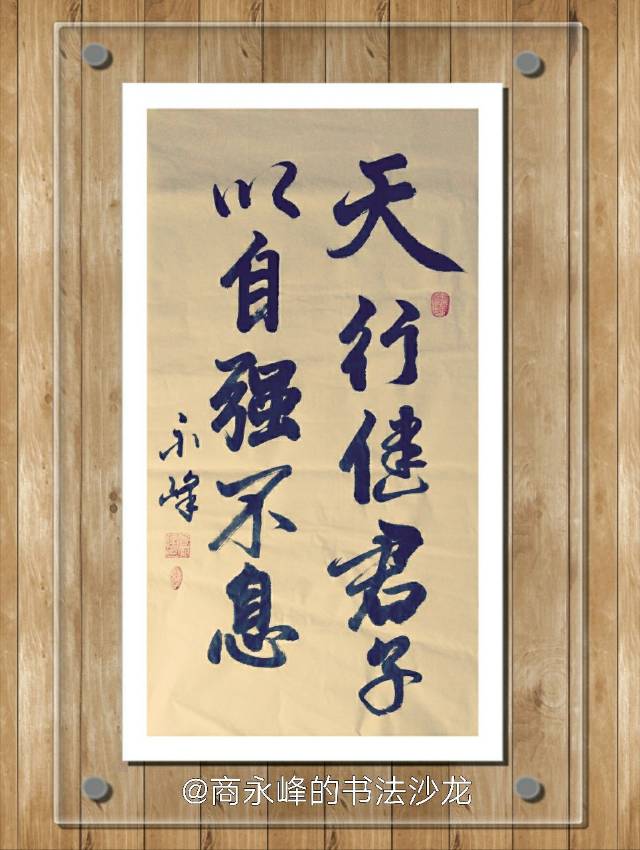 天行健君子
以自强不息
永峰
@商永峰的书法沙龙